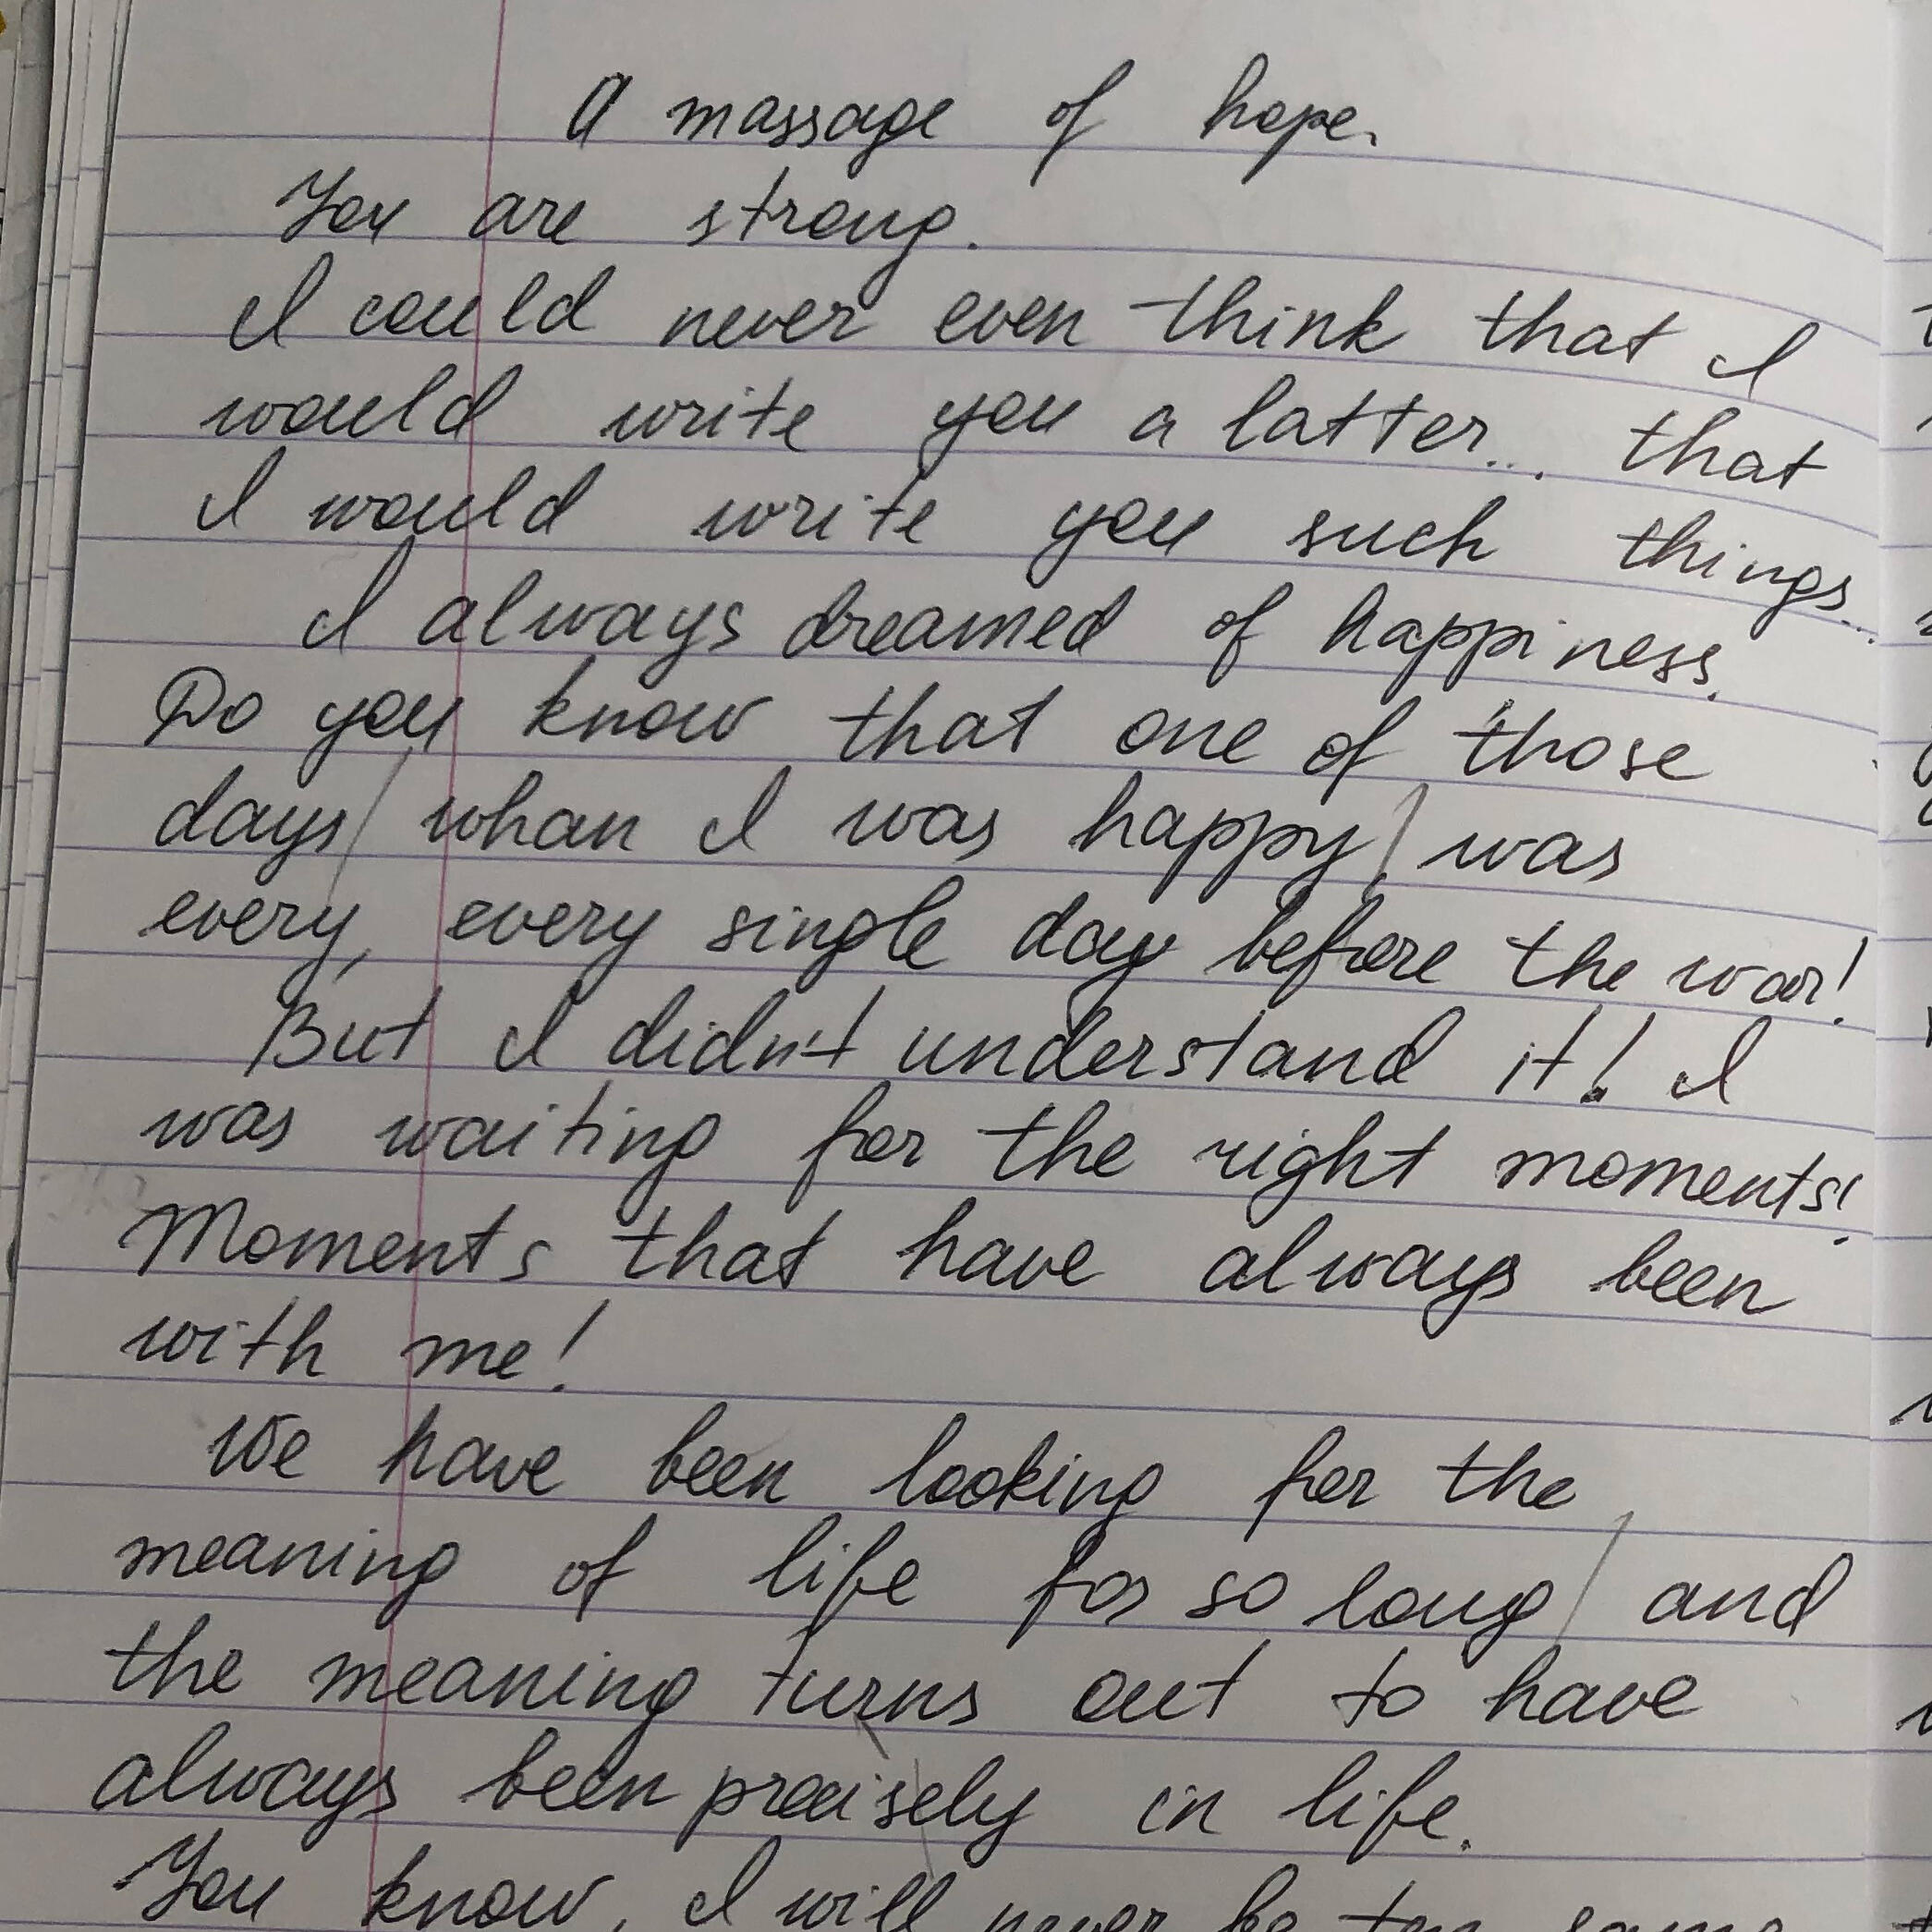 A massage of hope.
You are strong.
I could never even think that I
would write you a latter... that
I would write you such things...
I always dreamed of happiness.
Do you know that one of those
days whan I was happy, was
every, every single day before the war!
But I didn't understand it! I
was waiting for the right moments!
Moments that have always been
with me!
We have been looking for the
meaning of life for so long and
the meaning turns out to have
always been precisely in life.
You know, I will never be